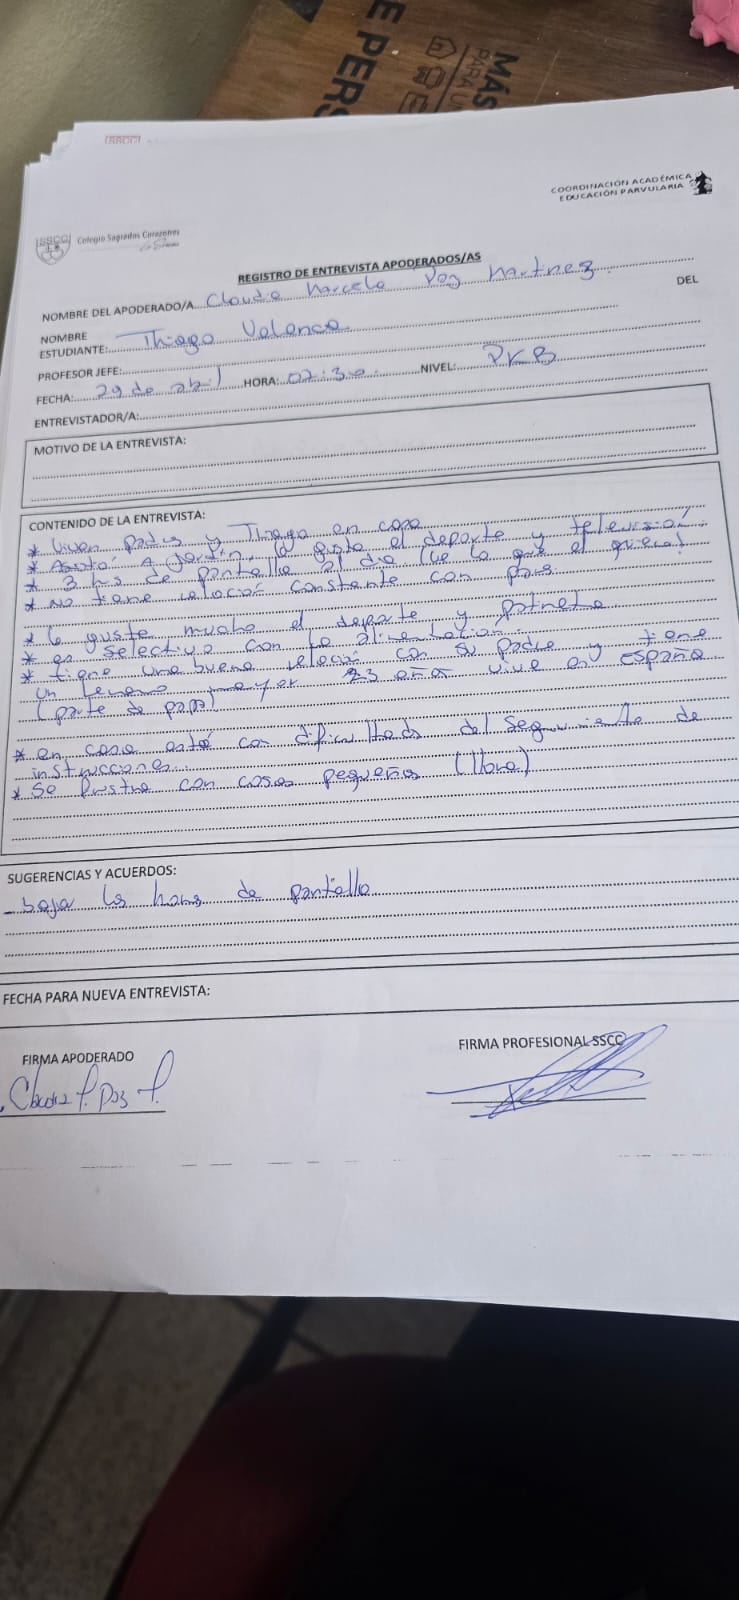 E PERS
MÁS
PARA U
SSCC
COORDINACIÓN ACADÉMICA
EDUCACIÓN PARVULARIA
SSCC
Colegio Sagrados Corazones
REGISTRO DE ENTREVISTA APODERADOS/AS
NOMBRE DEL APODERADO/A Claudia Marcela Paz Martinez
NOMBRE DEL
ESTUDIANTE: Thiago Valenca
PROFESOR JEFE:
FECHA: 29 de abril HORA: 02:30 NIVEL: PKB
ENTREVISTADOR/A:
MOTIVO DE LA ENTREVISTA:
CONTENIDO DE LA ENTREVISTA:
* Viven padres y Thiago en casa
* Asistió a Jardín, le gusta el deporte y televisión
* 3 hrs de pantalla al dia (ve lo que el quiera)
* No tiene relación constante con pares
* le gusta mucho el deporte y patineta
* es selectivo con la alimentación
* tiene una buena relación con su padre y tiene
un hermano mayor 23 años vive en España
(parte de papá)
* en casa está con dificultads del seguimiento de
instrucciones
* Se frustra con cosas pequeñas (llora)
SUGERENCIAS Y ACUERDOS:
- bajar las horas de pantalla
FECHA PARA NUEVA ENTREVISTA:
FIRMA APODERADO
FIRMA PROFESIONAL SSCC